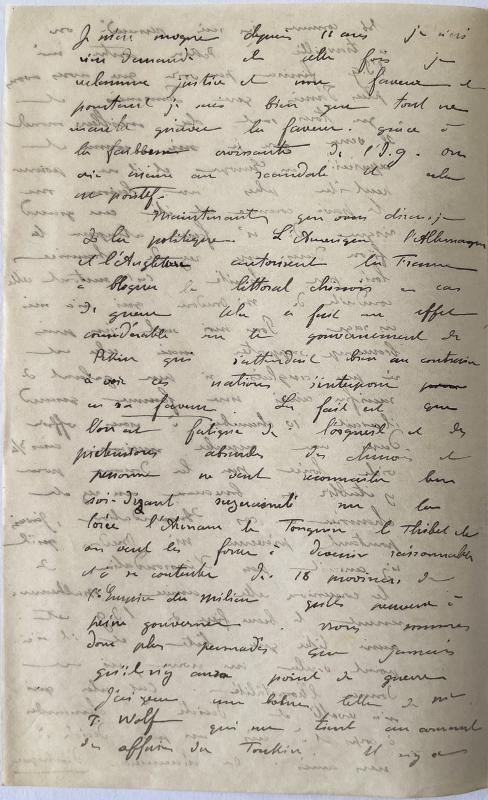 Je m'en moque depuis 11 ans je n'ai
rien demandé et cette fois je
réclamme justice et non faveur et
pourtant je sais bien que tout ne
marche qu'avec la faveur. grâce à
la faiblesse croissante de l'I.G. on
en arrive au scandale et cela
en positif.
Maintenant que vous dirai-je
de la politique. L'Amérique, l'Allemagne
et l'Angleterre autorisent la France
à bloquer le littoral chinois en cas
de guerre cela a fait un effet
considérable sur le gouvernement de
Pékin qui s'attendait bien au contraire
à voir ces nations s'interposer
en sa faveur. Le fait est que
l'on est fatigué de l'orgueil et des
prétentions absurdes des chinois et
personne ne veut reconnaitre leur
soi-disant suzeraineté sur la
Corée l'Annam le Tonquin le Thibet etc
on veut les forcer à devenir raisonnables
et à se contenter des 18 provinces de
l'Empire du Milieu qu'ils peuvent à
peine gouverner. nous sommes
donc plus persuadés que jamais
qu'il n'y aura point de guerre
J'ai reçu une bonne lettre de Mr
F. Wolf qui me tient au courant
des affaires du Tonkin. Il n'y a